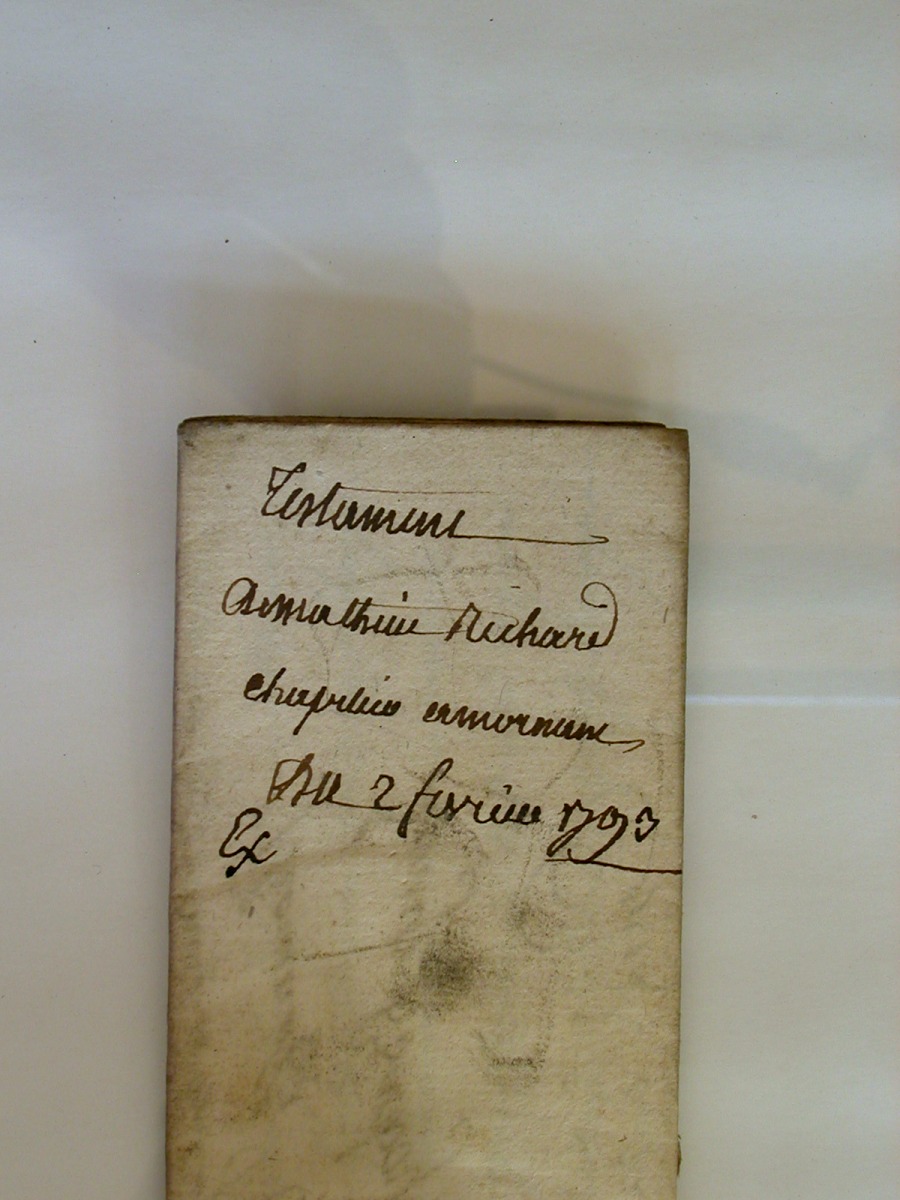 Testament
de mathieu Richard
chapelier amornant
Du 2 fevrier 1793
Ex